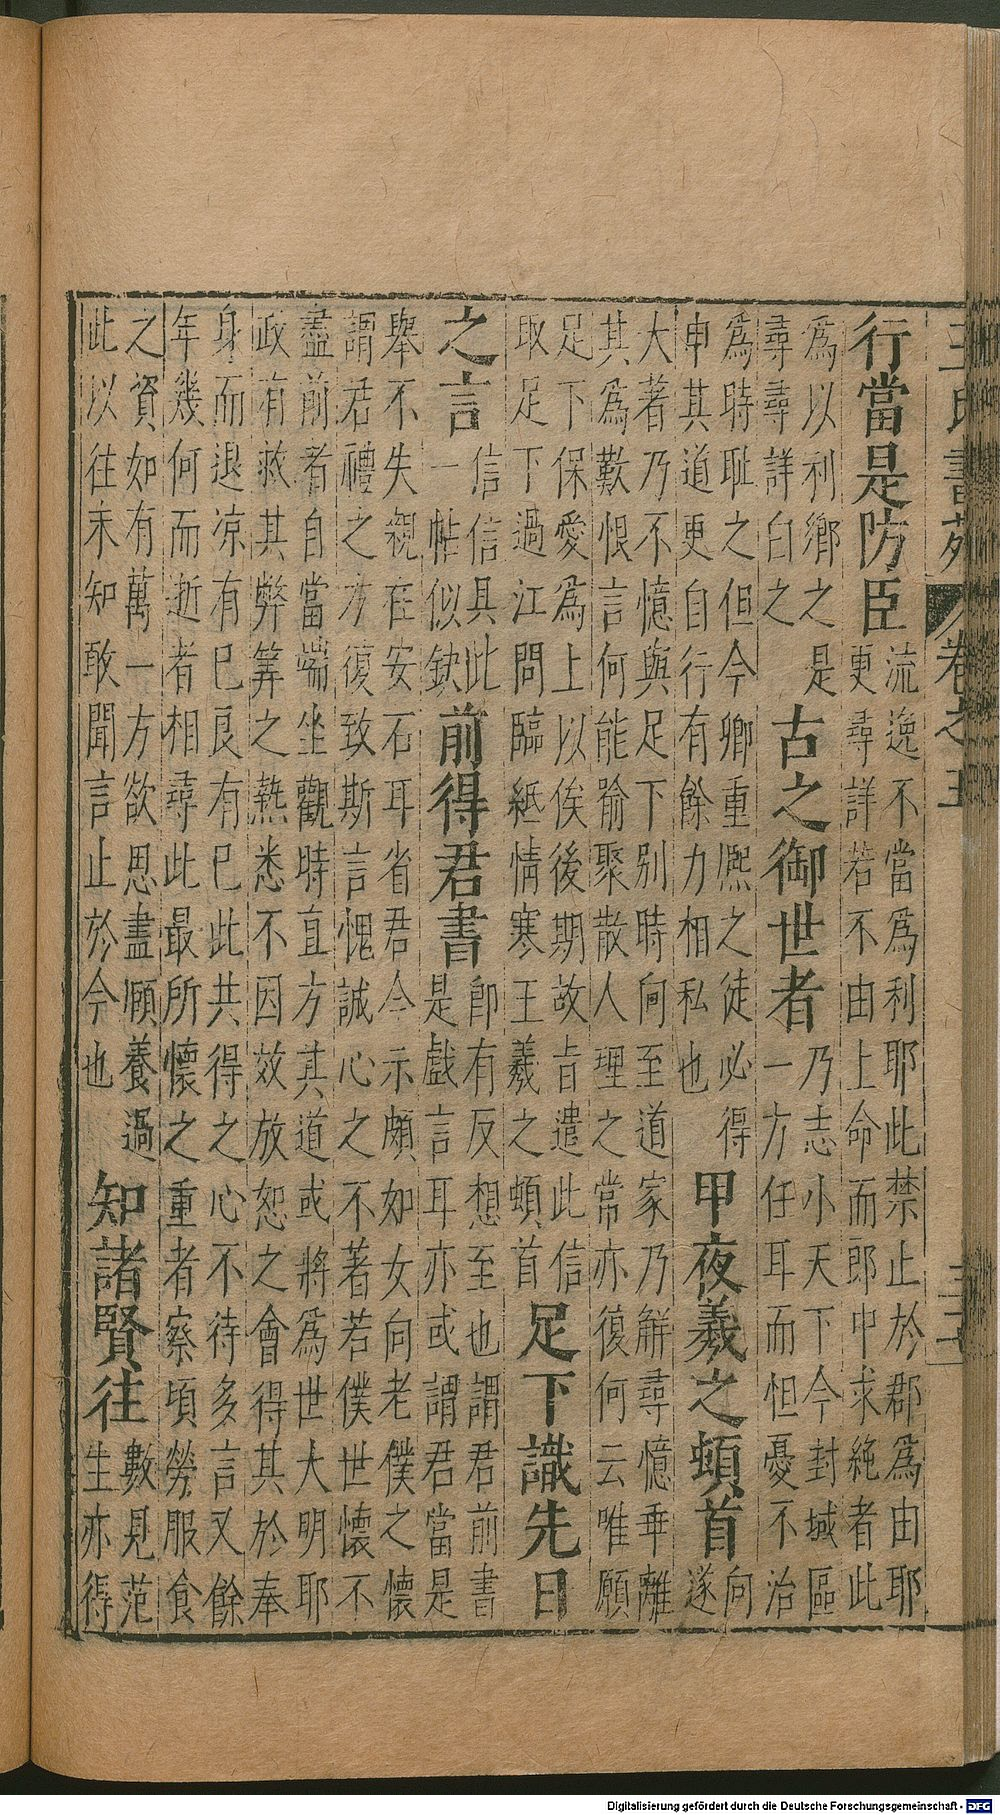 王氏書苑 卷之五
行當是防臣
流逸不當爲利耶此禁止於郡爲由耶
更尋詳若不由上命而郎中求絶者此
爲以利鄉之是
尋尋詳白之
古之御世者
乃志小天下今封域區
一方任耳而怛憂不治
爲時耻之但今卿重熙之徒必得
申其道更自行有餘力相私也
甲夜羲之頓首
向
遂
大著乃不憶與足下別時向至道家乃解尋憶乖離
其爲歎恨言何能喻聚散人理之常亦復何云唯願
足下保愛爲上以俟後期故旨遣此信
取足下過江問臨紙情寒王羲之頓首
足下識先日
之言
信信具此
一帖似缺
前得君書
卽有反想至也謂君前書
是戲言耳亦或謂君當是
舉不失親在安石耳省君今示頗如女向老僕之懷
謂君禮之方復致斯言愧誠心之不著若僕世懷不
盡前者自當端坐觀時直方其道或將爲世大明耶
政有救其弊筭之熟悉不因效放恕之會得其於奉
身而退凉有巳良有巳此共得之心不待多言又餘
年幾何而逝者相尋此最所懷之重者察頃勞服食
之資如有萬一方欲思盡頤養過
此以往未知敢聞言止於今也
知諸賢往
數見范
生亦得
Digitalisierung gefördert durch die Deutsche Forschungsgemeinschaft - DFG